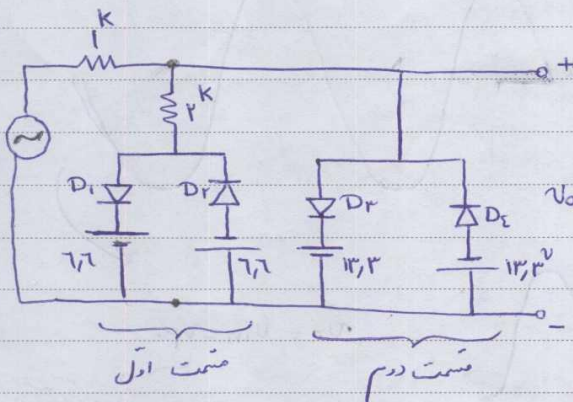 ۱K
+
۲K
D۱
D۲
D۳
D٤
vo
٦,٦
٦,٦
۱۳,۳
۱۳,۳v
-
قسمت اول
قسمت دوم